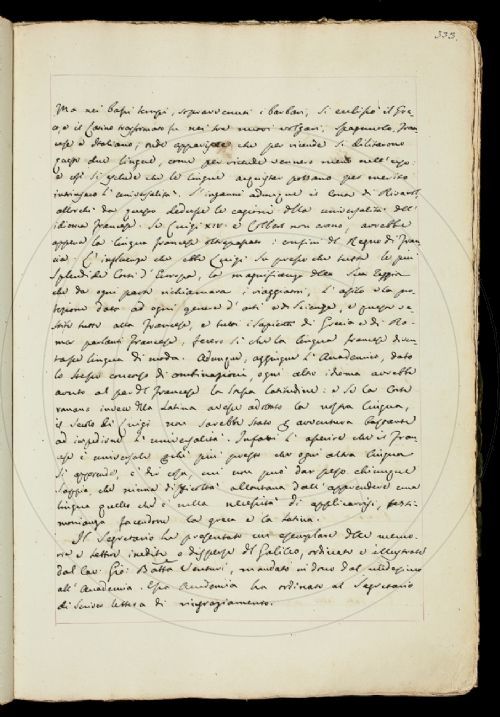 333.
Ma nei bassi tempi, sopravvenuti i barbari, si eclissò il Gre-
co, e il Latino trasformato fu nei tre nuovi volgari, Spagnuolo, Fran-
cese e Italiano; onde apparisce che per vicende si dilatarono
queste due lingue, come per vicende vennero meno nell'uso.
e così si esclude che le lingue acquistar possano per merito
intrinseco l'universalità. S'inganna adunque il Conte di Rivarol
allorchè da questo dedusse le cagioni della universalità dell'
idioma Francese. Se Luigi XIV. e Colbert non erano, avrebbe
appena la lingua francese oltrepassati i confini del Regno di Fran-
cia. L'influenza che ebbe Luigi su presso che tutte le più
splendide Corti d'Europa, la magnificenza della sua Reggia
che da ogni parte richiamava i viaggiatori, l'asilo e la pro-
tezione dato ad ogni genere d'arti e di Scienze, e queste ve-
stite tutte alla Francese, e tutti i Sapienti di Grecia e di Ro-
ma parlanti Francese, fecero sì che la lingua francese diven-
tasse lingua di moda. Adunque, aggiugne l'Accademico, dato
lo stesso concorso di combinazioni, ogni altro idioma avrebbe
avuto al par del Francese la stessa latitudine: e se la Corte
romana invece della Latina avesse adottato la nostra lingua,
il Secolo di Luigi non sarebbe stato per avventura bastante
ad impedirne l'universalità. Infatti l'asserire che il Fran-
cese è universale perchè più presto che ogni altra lingua
si apprende, è dir cosa, cui non può dar peso chiunque
sappia, che niuna difficoltà allontana dall'apprendere una
lingua quello che è nella necessità di applicarvisi, testi-
monianza facendone la greca e la latina.
Il Segretario ha presentato un esemplare delle memo-
rie e lettere inedite o disperse di Galileo, ordinate e illustrate
dal Cav. Gio: Batta Venturi, mandato in dono dal medesimo
all'Accademia. Essa Accademia ha ordinato al Segretario
di scriver lettera di ringraziamento.